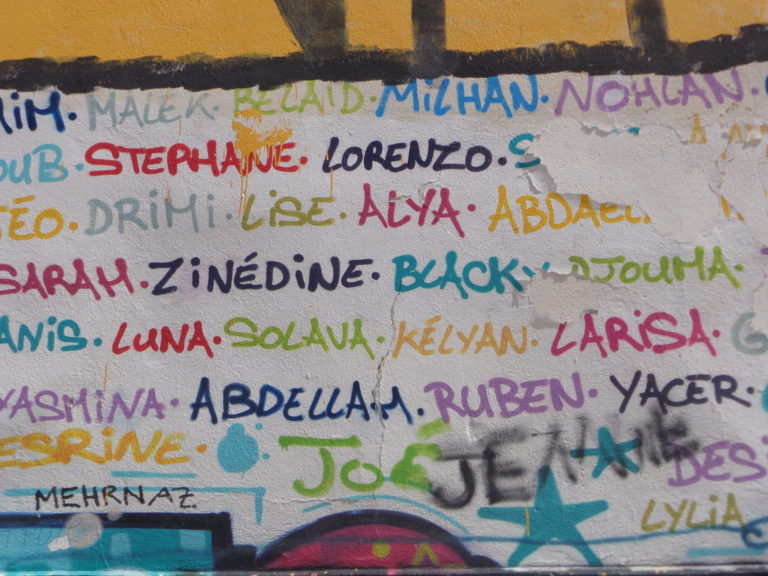 MALEK· BELAID· MiLHAN· NOHLAN·
STEPHANE· LORENZO·
DRiMi· LiSE· ALYA·
SARAH· ZiNÉDiNE· BLACKY· DJOUMA·
ANiS· LUNA· SOLAVA· KÉLYAN· LARiSA·
YASMiNA· ABDELLAH. RUBEN· YACER·
JoÉ
MEHRNAZ
LYLiA